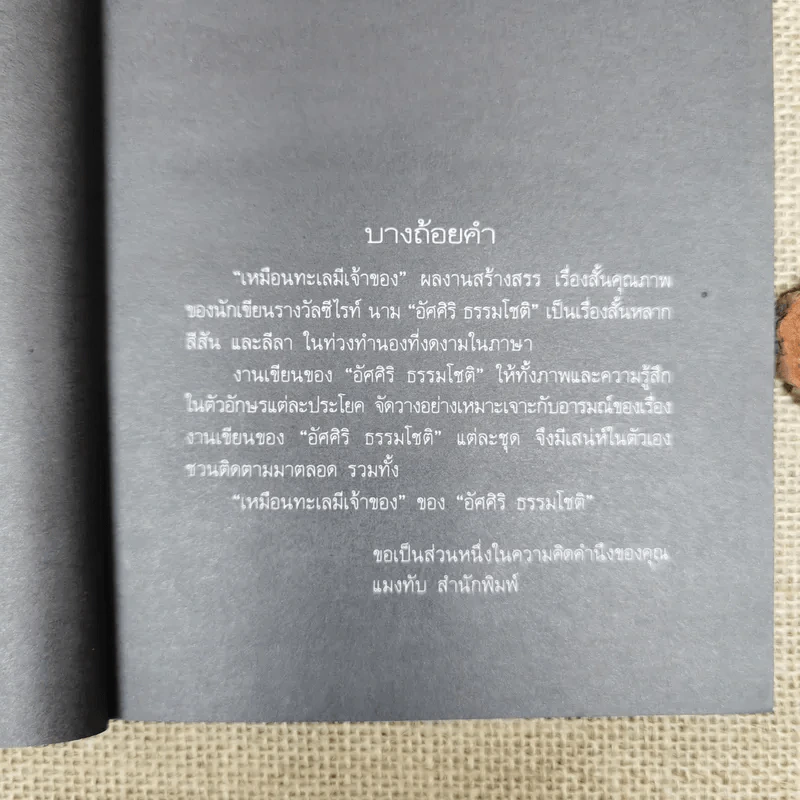 บางถ้อยคำ
“เหมือนทะเลมีเจ้าของ” ผลงานสร้างสรร เรื่องสั้นคุณภาพ
ของนักเขียนรางวัลซีไรท์ นาม “อัศศิริ ธรรมโชติ” เป็นเรื่องสั้นหลาก
สีสัน และลีลา ในท่วงทำนองที่งดงามในภาษา
งานเขียนของ “อัศศิริ ธรรมโชติ” ให้ทั้งภาพและความรู้สึก
ในตัวอักษรแต่ละประโยค จัดวางอย่างเหมาะเจาะกับอารมณ์ของเรื่อง
งานเขียนของ “อัศศิริ ธรรมโชติ” แต่ละชุด จึงมีเสน่ห์ในตัวเอง
ชวนติดตามมาตลอด รวมทั้ง
“เหมือนทะเลมีเจ้าของ” ของ “อัศศิริ ธรรมโชติ”
ขอเป็นส่วนหนึ่งในความคิดคำนึงของคุณ
แมงทับ สำนักพิมพ์